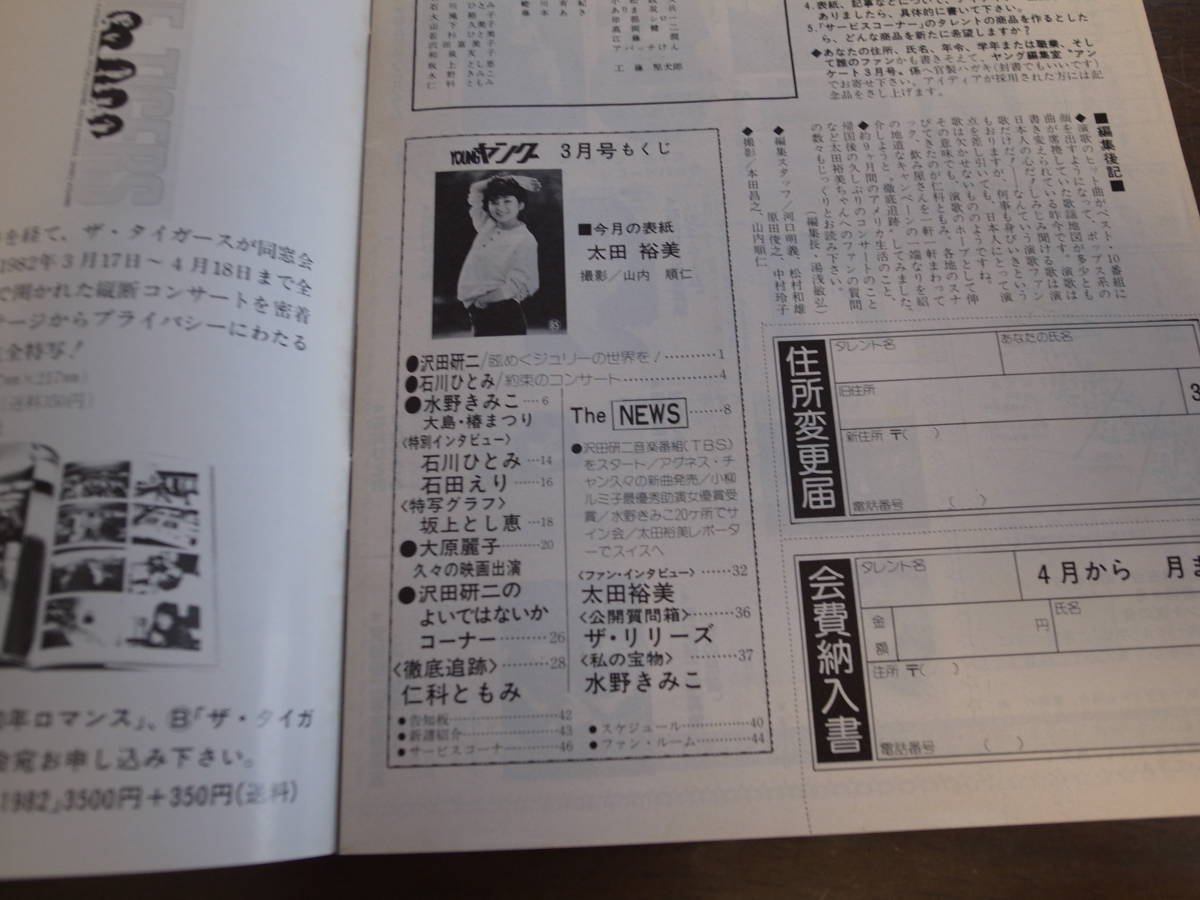 を経て、ザ・タイガースが同窓会
1982年3月17日～4月18日まで全
で開かれた縦断コンサートを密着
ージからプライバシーにわたる
全特写！
年ロマンス」、Ⓑ「ザ・タイガ
金宛お申し込み下さい。
1982」3500円＋350円(送料)
アパッチけん
工藤堅太郎
4. 表紙、記事などについて、
ありましたら、具体的に書いて下さい。
5.「サービスコーナー」のタレントの商品を作るとした
ら、どんな商品を新たに希望しますか？
◆あなたの住所、氏名、年令、学年または職業、そし
て誰のファンかも書きそえて、ヤング編集室“アン
ケート3月号〟係へ官製ハガキ(封書でもいいです)
でお寄せ下さい。アイディアが採用された方には記
念品をさし上げます。
■編集後記■
◆演歌のヒット曲がベスト・10番組に
顔を出すようになって、ポップス系の
曲が席捲していた歌謡地図が多少とも
書き変えられている昨今です。演歌は
日本人の心だ！しみじみ聞ける歌は演
歌だけだ！――なんていう演歌ファン
もおりますが、何事も身びいきという
点を差し引いても、日本人にとって演
歌は欠かせないもののようですね。
その意味でも、演歌のホープとして伸
びてきたのが仁科ともみ。各地のスナ
ック、飲み屋さんを一軒一軒まわって
の地道なキャンペーンの一端なりを紹
介しようと〝徹底追跡〟してみました。
◆約9ヶ月間のアメリカ生活のこと、
帰国後の久しぶりのコンサートのこと
など太田裕美ちゃんへのファンの質問
の数々もじっくりとお読み下さい。
(編集長・湯浅敏弘)
◆編集スタッフ／河口明義、松村和雄
原田俊之、中村玲子
◆撮影／本田昌之、山内順仁
YOUNGヤング 3月号もくじ
■今月の表紙
太田 裕美
撮影／山内 順仁
●沢田研二／眩めくジュリーの世界を！………1
●石川ひとみ／約束のコンサート………4
●水野きみこ……6
大島・椿まつり
〈特別インタビュー〉
石川ひとみ…14
石田えり……16
〈特写グラフ〉
坂上とし恵…18
●大原麗子………20
久々の映画出演
●沢田研二の
よいではないか
コーナー………26
〈徹底追跡〉………28
仁科ともみ
The NEWS……8
●沢田研二音楽番組(TBS)
をスタート／アグネス・チ
ャン久々の新曲発売／小柳
ルミ子最優秀助演女優賞受
賞／水野きみこ20ヶ所でサ
イン会／太田裕美レポータ
ーでスイスへ
〈ファン・インタビュー〉……32
太田裕美
〈公開質問箱〉………36
ザ・リリーズ
〈私の宝物〉………37
水野きみこ
●告知板………42
●新譜紹介………43
●サービスコーナー………46
●スケジュール………40
●ファン・ルーム………44
住所変更届
タレント名
あなたの氏名
旧住所
新住所 〒( )
電話番号 ( )
会費納入書
タレント名
4月から 月ま
金額
円
氏名
住所 〒( )
電話番号 ( )